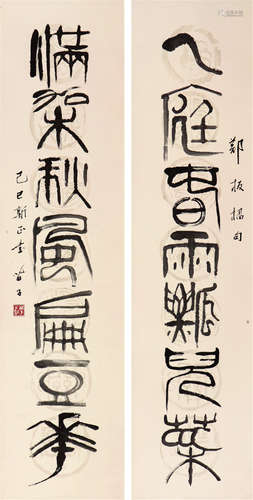 鄭板橋句
入庭春雨瓢兒菜
滿架秋風扁豆華
己巳新正書